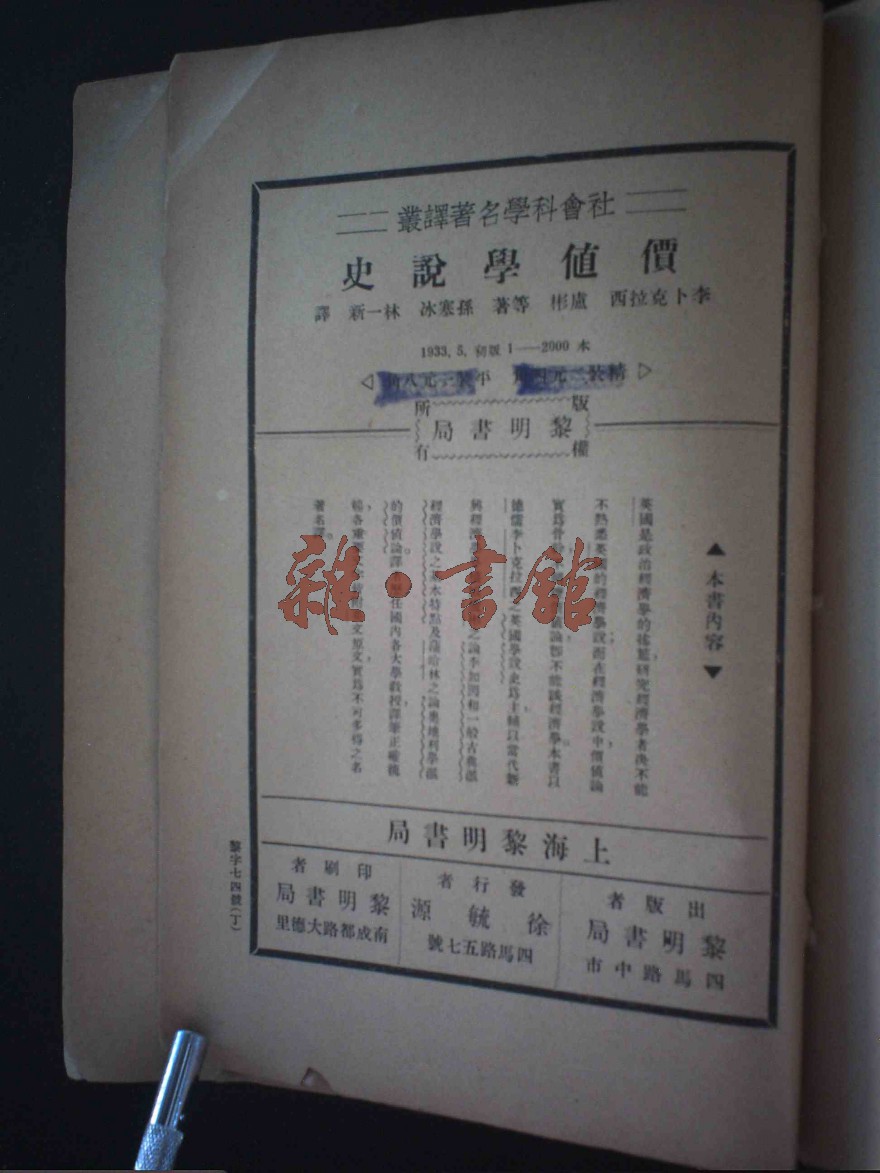 社會科學名著譯叢
價値學說史
李卜克拉西 盧彬 等著 孫寒冰 林一新 譯
1933, 5, 初版 1——2000 本
▷精裝二元四角 平裝一元八角◁
版權所有
黎明書局
▲本書內容▼
英國是政治經濟學的
研究經濟學者決不能
不熟悉英國的經濟學說,而在經濟學說中,價値論
實爲骨
論卽不能談經濟學。本書以
德儒李卜克拉西之英國學說史爲主,輔以當代新
興經濟
之論李加圖和一般古典派
經濟學說之基本特點及
林之論奧地利學派
的價値論。譯者歷任國內各大學教授,譯筆正確流
暢,各重要
文原文,實爲不可多得之名
著名譯。
上海黎明書局
出版者
黎明書局
四馬路中市
發行者
徐毓源
四馬路五七號
印刷者
黎明書局
南成都路大德里
黎字七四號(丁)
雜·書館